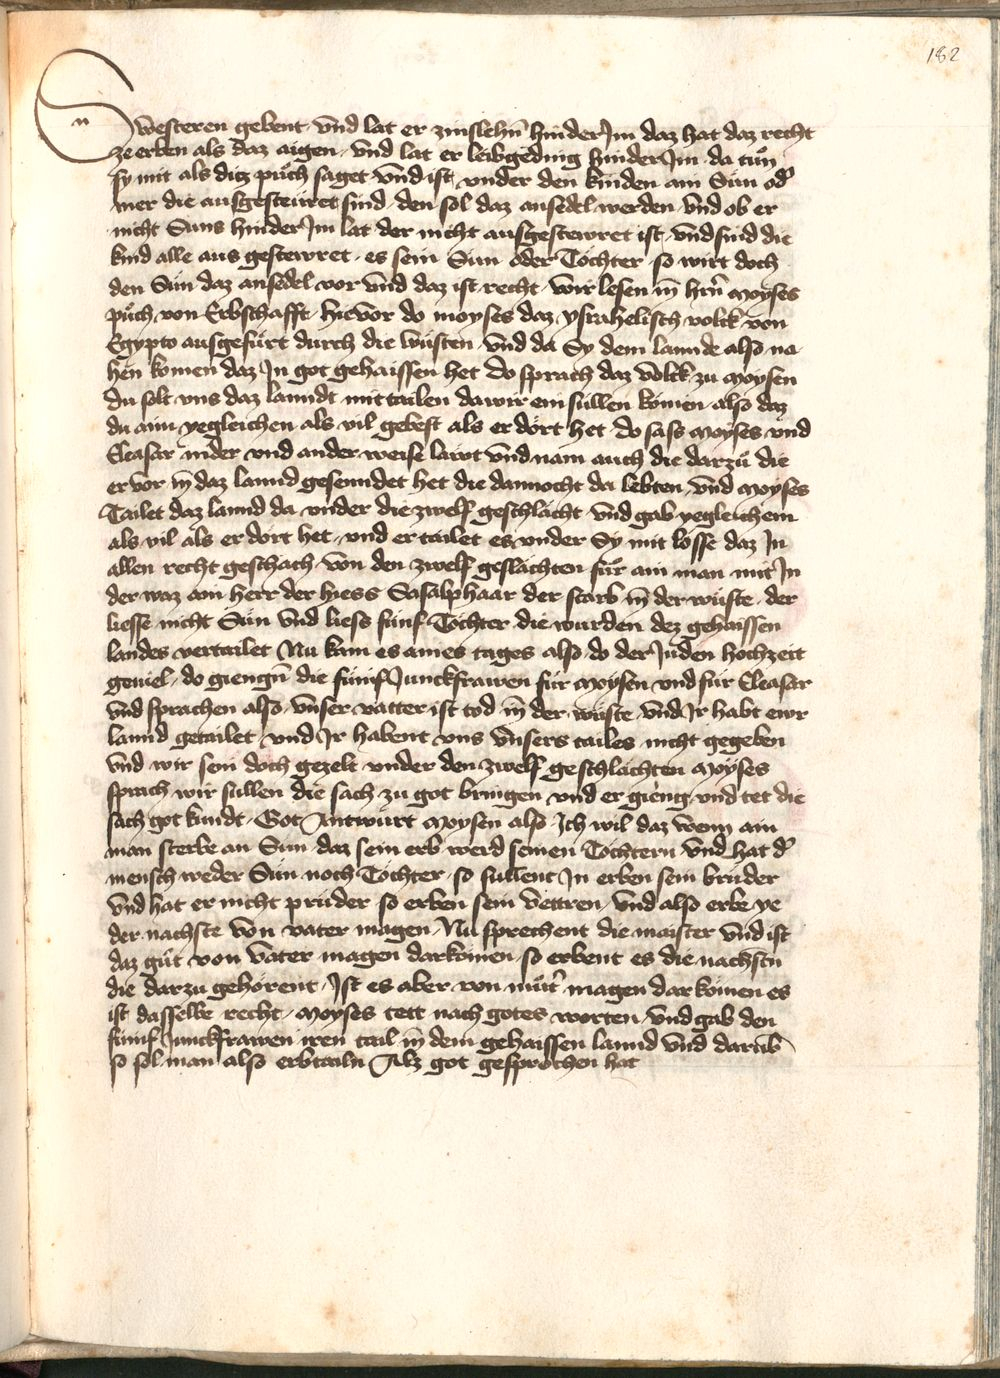 182
Swesteren gebent vnd lat er zinslehn̄ hinder Jm daz hat daz recht
ze erben als daz aigen vnd lat er leibgeding hinder Jm da tuͦn
sy mit als ditz puͦch saget vnd ist vnder den kinden ain Sün od͛
mer die ausgesteüret sind den sol daz ansedel werden vnd ob er
nicht Suns hinder Jm lat der nicht ausgestewret ist vnd sind die
kind alle aus gestewret es sein Sün oder Töchter so wirt doch
den Sün daz ansedel vor vnd daz ist recht wir lesen in̄ hrn̄ Moyses
puͦch von Erbschafft hieuor do moyses daz ysrahelisch volck von
Egypto ausgefürt durch die wüsten vnd da Sy dem lannde also na
hen komen daz Jn got gehaissen het do sprach daz volck zu Moysen
du solt vns daz lanndt mittailen da wir ein sullen komen also daz
du aim yegleichen als vil gebest als er dört het do sass Moyses vnd
Eleasar nider vnd ander weise läwt vnd nam auch die darzuͦ die
er vor in̄ daz lannd gesenndet het die dannocht da lebten vnd Moyses
Tailet daz lannd da vnder die zwelf geschlächt vnd gab yegleichem
als vil als er dört het vnd er tailet es vnder Sy mit losse daz Jn
allen recht geschach von den zwelf geslächten fuͦr ain man mit Jn
der waz ain herr der hiess Sasalphaar der starb in̄ der wüste der
liesse nicht Sün vnd liess fünf Töchter die wurden dez gehaissen
landes vertailet Nu kam es aines tages also do der Juden hochzeit
geuiel do giengn̄ die fünf Junckfrawen für Moysen vnd für Eleasar
vnd sprachen also vnser vatter ist tod in̄ der wüste vnd Jr habt ewr
lannd getailet vnd Jr habent vns vnsers tailes nicht gegeben
vnd wir sein doch gezelt vnder den zwelf geschlächten Moyses
sprach wir sullen die sach zu got bringen vnd er gieng vnd tet die
sach got kundt Got Antwurt Moysen also Jch wil daz wenn ain
man sterbe an Sun daz sein erb werd seinen Töchtern vnd hat d͛
mensch weder Sün noch Töchter so sullent Jn erben sein brüder
vnd hat er nicht prüder so erben sein vettren vnd also erbe ye
der nachste von vater magen Nu sprechent die maister vnd ist
daz guͦt von vater magen darkomen so erbent es die nachstn
die darzu gehörent Jst es aber von muͦt͛ magen dar komen es
ist dasselbe recht Moyses tett nach gotes worten vnd gab den
fünf Junckfrawen iren tail in̄ dem gehaissen lannd vnd darub̄
so sol man also erbtailn Alz got gesprochen hat